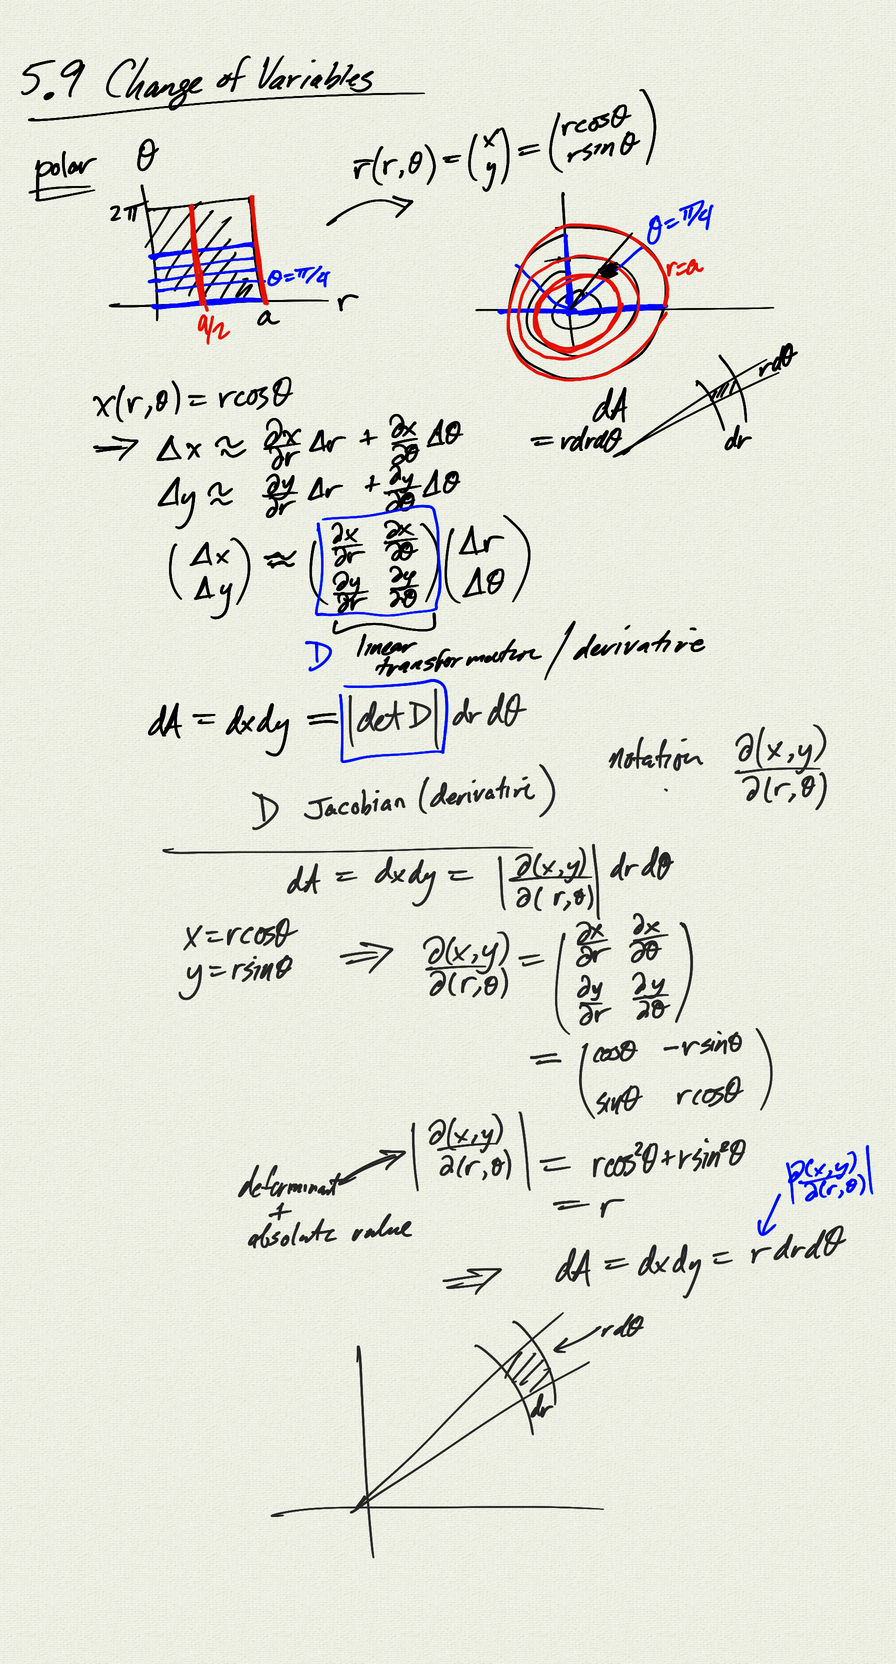 5.9 Change of Variables
polar θ
r̄(r,θ) = (x y) = (rcosθ rsinθ)
2π
θ=π/4
a/2
a
r
θ=π/4
r=a
x(r,θ) = rcosθ
⇒ Δx ≈ ∂x/∂r Δr + ∂x/∂θ Δθ
Δy ≈ ∂y/∂r Δr + ∂y/∂θ Δθ
dA
= rdrdθ
rdθ
dr
(Δx Δy) ≈ (∂x/∂r ∂x/∂θ ∂y/∂r ∂y/∂θ) (Δr Δθ)
D linear
transformation / derivative
dA = dxdy = |det D| dr dθ
notation ∂(x,y)/∂(r,θ)
D Jacobian (derivative)
dA = dxdy = |∂(x,y)/∂(r,θ)| dr dθ
x=rcosθ
y=rsinθ
⇒ ∂(x,y)/∂(r,θ) = (∂x/∂r ∂x/∂θ ∂y/∂r ∂y/∂θ)
= (cosθ -rsinθ sinθ rcosθ)
|∂(x,y)/∂(r,θ)| = rcos²θ+rsin²θ
= r
determinant
+
absolute value
|∂(x,y)/∂(r,θ)|
⇒ dA = dxdy = r drdθ
rdθ
dr